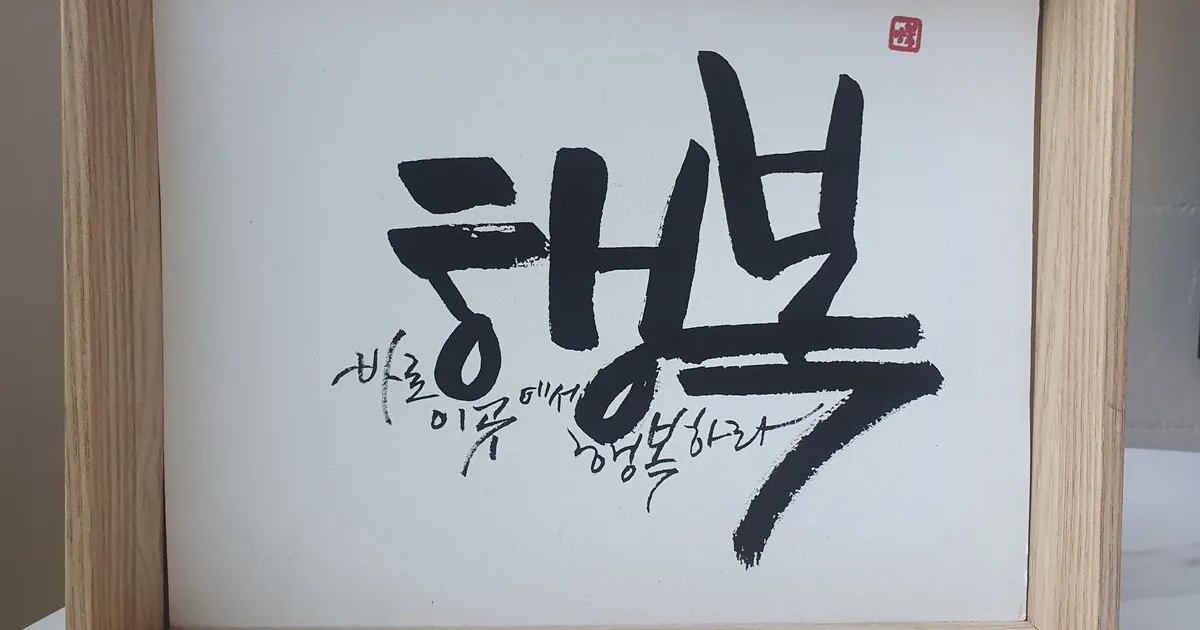 행복
바로
이곳에서
행복하라